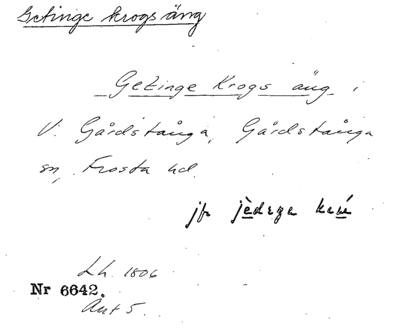 Getinge krogs äng
Getinge Krogs äng i
V. Gårdstånga, Gårdstånga
sn, Frosta hd.
jfr
Lh. 1806
Nr 6642.
Äut 5.